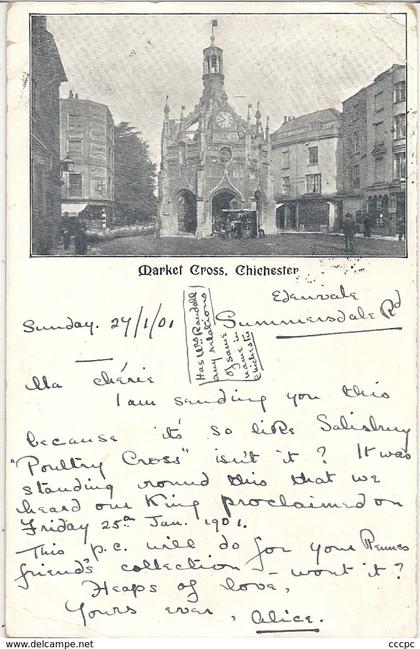 Market Cross, Chichester
Edenvale
Summersdale Rd
Sunday. 27/1/01
Has Mrs Randall
any relations
of same
name in
Chichester
Ma chérie
I am sending you this
because it's so like Salisbury
"Poultry Cross" isn't it? It was
standing round this that we
heard our King proclaimed on
Friday 25th Jan. 1901.
This p.c. will do for your Rennes
friend's collection - won't it?
Heaps of love,
Yours ever, Alice.
https://www.delcampe.net
cccpc